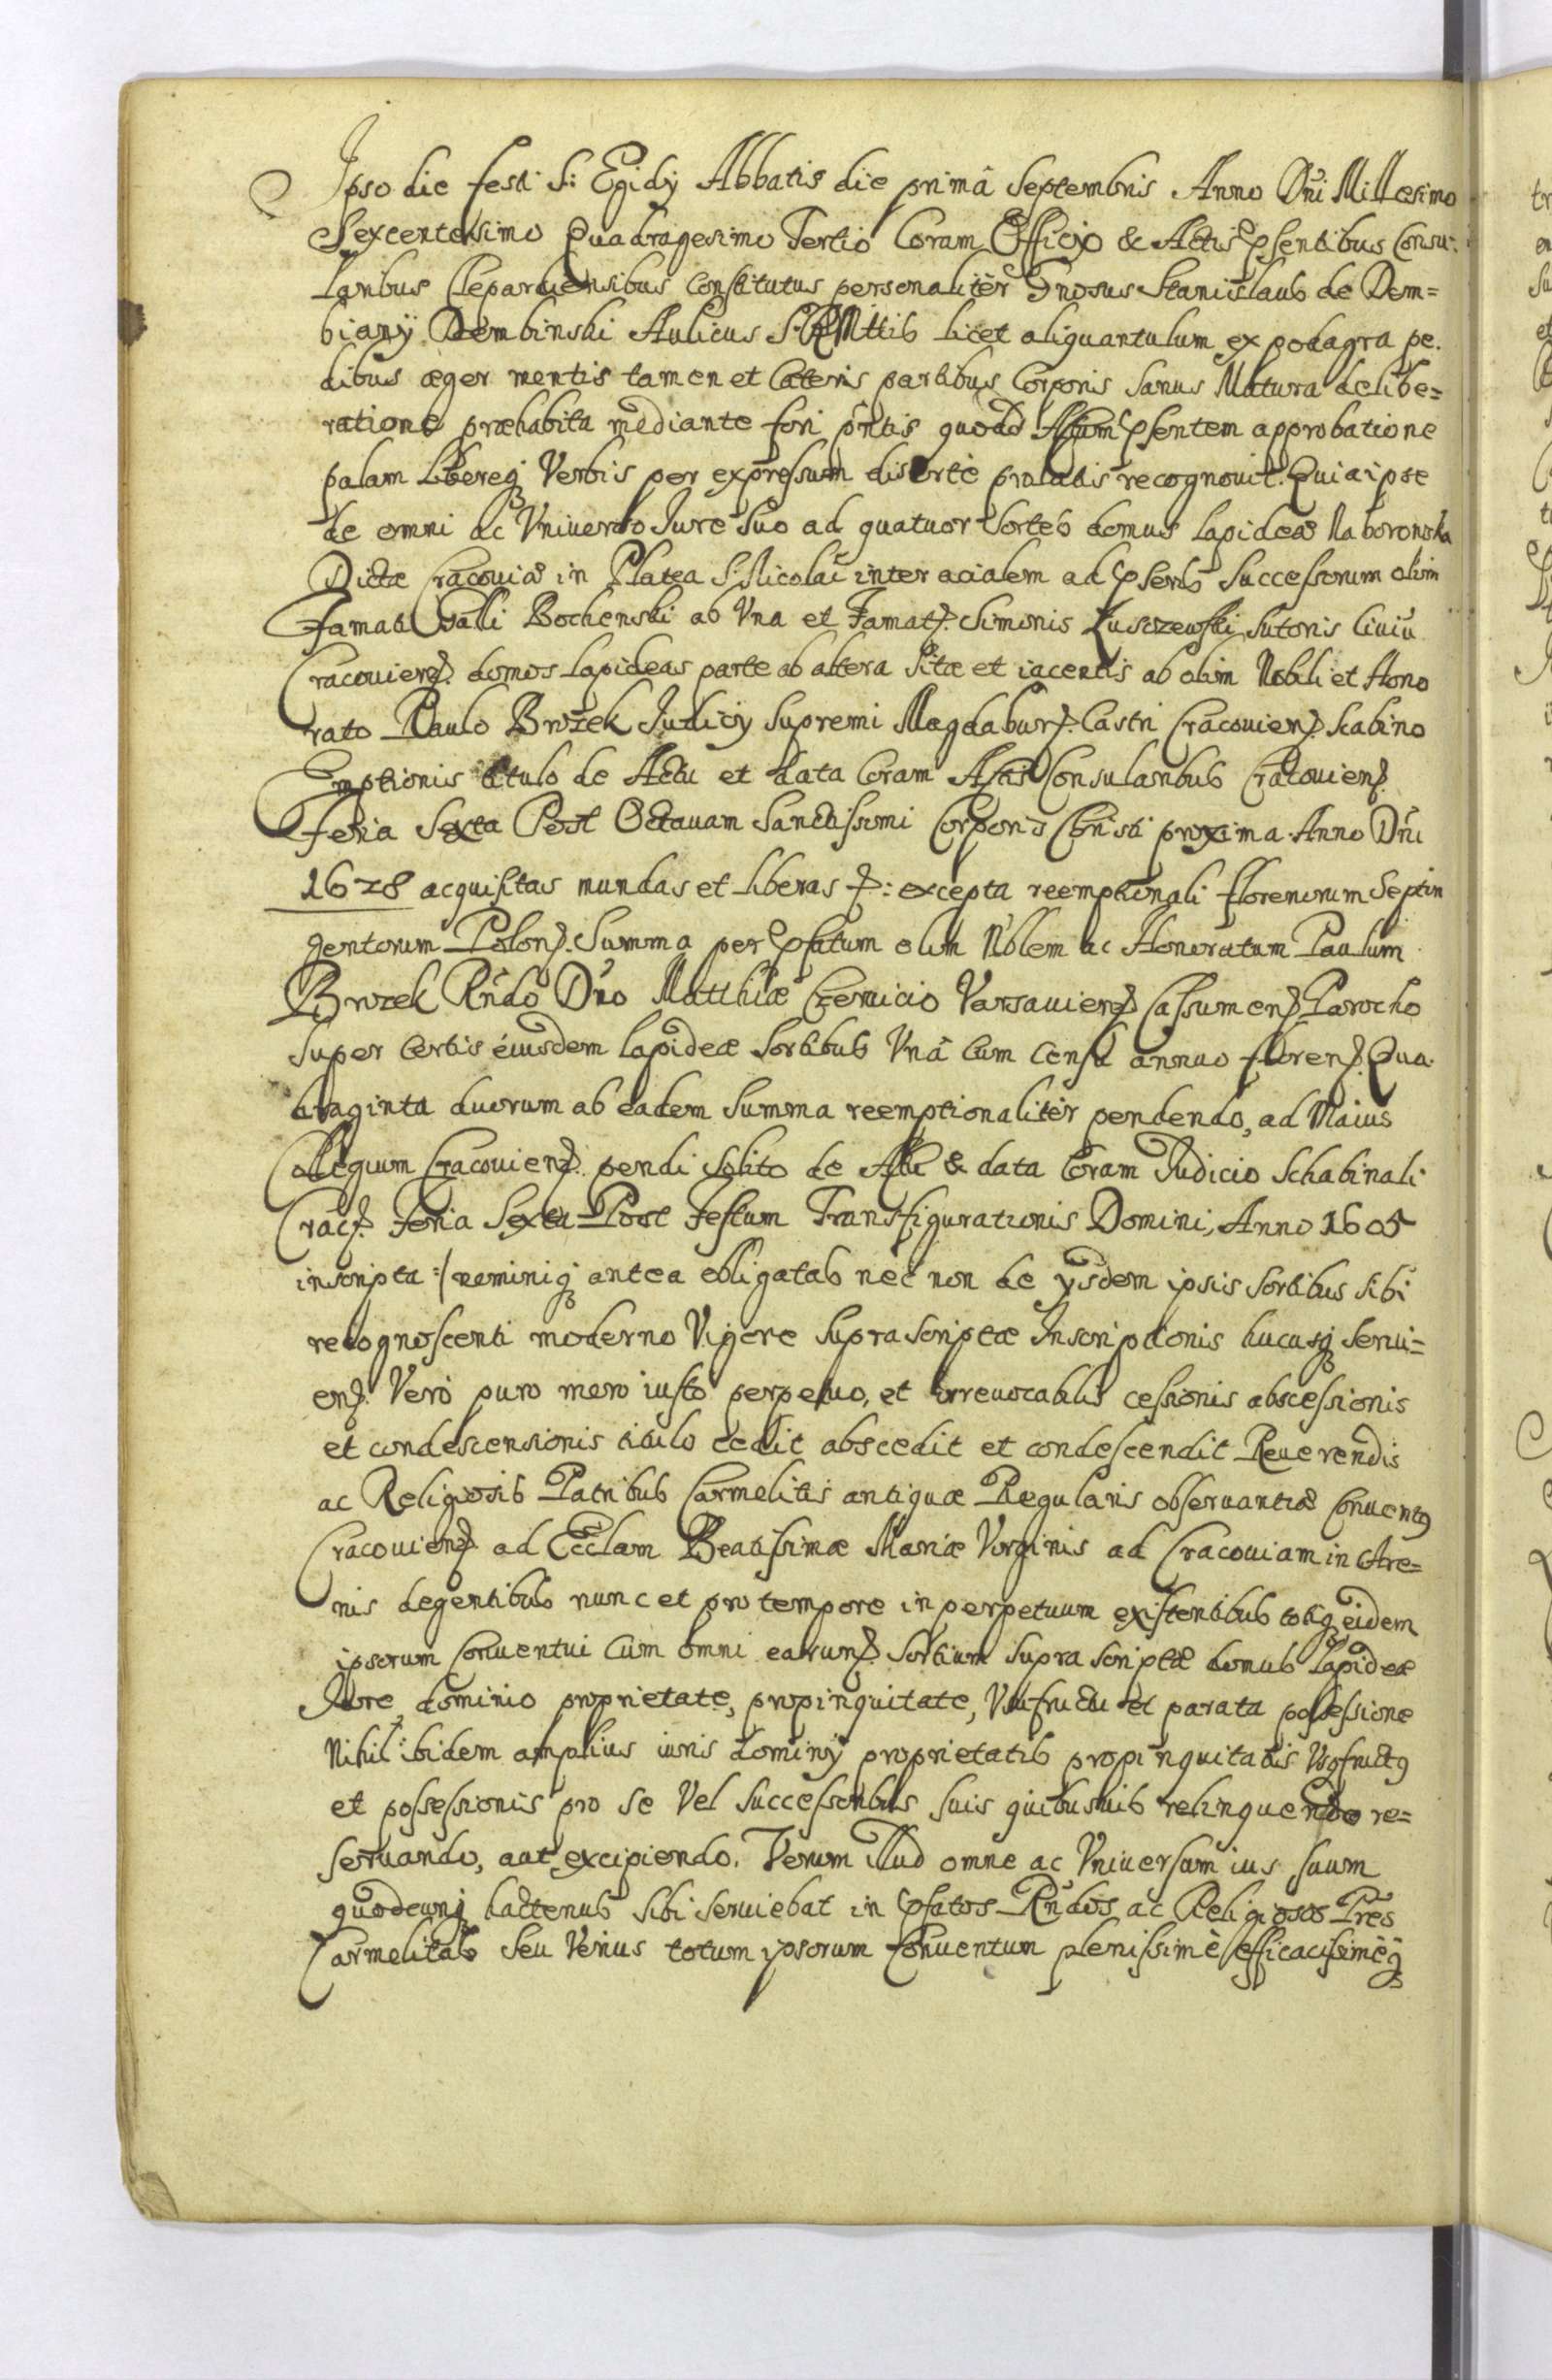 Ipso die festi S: Egidÿ Abbatis die primâ Septembris Anno Dni Millesimo
Sexcentesimo Quadragesimo Tertio Coram Officio & Actis psentibus Consu-
laribus Clepardiensibus constitutus personalitèr Gnosus Stanislaus de Dem=
biany Dembinski Aulicus S: R: Mttis licet aliquantulum ex podagra pe-
dibus æger mentis tamen et Cæteris partibus Corporis Sanus Matura delibe=
ratione præhabita mediante fori pntis quoad Actum psentem approbatione
palam libereq Verbis per expressum disertè prolatis recognouit. Quia ipse
de omni ac Vniuerso Iure Suo ad quatuor Sortes domus lapideæ Naboronska
Dictæ Cracouiæ in Platea S. Nicolai inter acialem ad psens Successorum olim
Famati Galli Bochenski ab Vna et Famati Simonis Luszczewski Sutoris Ciuiu
Cracouien. domos lapideas parte ab altera Sitæ et iacentis ab olim Nobili et Hono
rato Paulo Brożek Iudicÿ Supremi Magdabur. Castri Cracouien. Scabino
Emptionis titulo de Actu et data Coram Actis Consularibus Cracouien.
Feria Sexta Post Octauam Sanctissimi Corporis Christi proxima Anno Dni
1628 acquisitas mundas et liberas /: excepta reemptionali florenorum Septin
gentorum Polon. Summa per pfatum olim Nblem ac Honoratum Paulum
Brozek Rndo Dno Matthiæ Czernicio Varsauien Cassumen Parocho
Super Certis eiusdem lapideæ Sortibus Vnâ Cum Censu annuo floren. Qua-
draginta duorum ab eadem Summa reemptionalitèr pendendo, ad Maius
Collegium Cracouien. pendi Solito de Actu & data Coram Iudicio Schabinali
Crac. Feria Sexta Post Festum Transfigurationis Domini, Anno 1605
inscripta :/ neminiq antea obligatas nec non de ÿsdem ipsis Sortibus sibi
recognoscenti moderno Vigore Suprascriptæ Inscriptionis hucusq Serui=
en. Verò puro mero iusto perpetuo, et irreuocabilis cessionis abscessionis
et condescensionis titulo cedit abscedit et condescendit Reuerendis
ac Religiosis Patribus Carmelitis antiquæ Regularis obseruantiæ Conuentq
Cracouien ad Ecclam Beatissimæ Mariæ Virginis ad Cracouiam in Are=
nis degentibus nunc et pro tempore in perpetuum existentibus totiq eidem
ipsorum Conuentui Cum omni earun. Sortium Supra Scriptæ domus lapideæ
Iure, dominio proprietate, propinquitate, Vsufructu et parata possessione
Nihil ibidem amplius iuris dominÿ proprietatis propinquitatis Vsofructq
et possessionis pro se Vel Successoribus suis quibusuis relinquendo re=
seruando, aut excipiendo. Verum illud omne ac Vniuersum ius suum
quodcunq hactenus Sibi Seruiebat in pfatos Rndos ac Religiosos Pres
Carmelitas Seu Verius totum ipsorum Conuentum plenissimè efficacissimèq